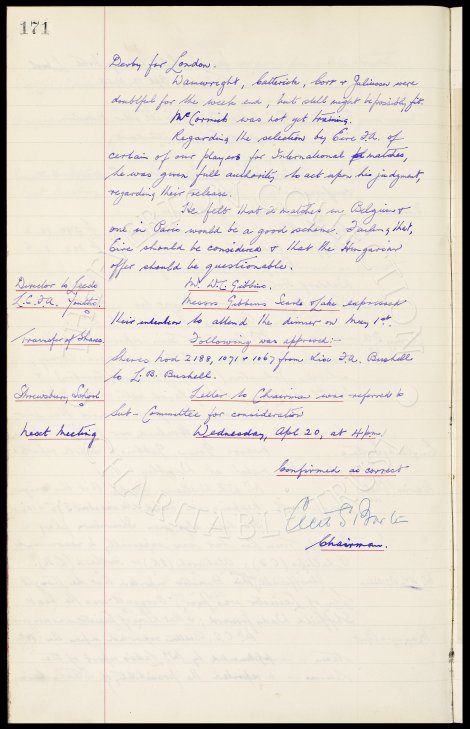 171
Derby for London.
Wainwright, Catterick, Corr & Juliussen were
doubtful for the week end, but still might be possibly fit.
McCormick was not yet training.
Regarding the selection by Eire F.A. of
certain of our players for International matches,
he was given full authority to act upon his judgment,
regarding their release.
He felt that 2 matches in Belgium &
one in Paris would be a good scheme. Failing that,
Eire should be considered & that the Hungarian
offer should be questionable.
Director to Leeds Mr. W.C. Gibbins.
L.C.F.A. Messrs Gibbins Searle expressed
their intention to attend the dinner on May 1st.
Transfer of Shares Following was approved:-
Shares Nos 2188, 1071 & 1067 from F.A. Bushell
to L.B. Bushell.
Shrewsbury School Letter to Chairman was referred to
Sub-Committee for consideration
Next Meeting Wednesday, Apl 20, at 4pm
Confirmed as correct
Chairman.
CHARITABLE TRUST